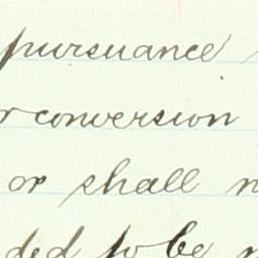 pursuance
conversion
or shall
ded to be